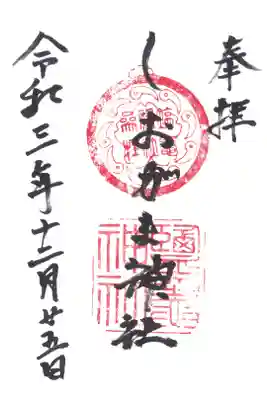 奉拝
しおがま神社
令和三年十二月廿五日